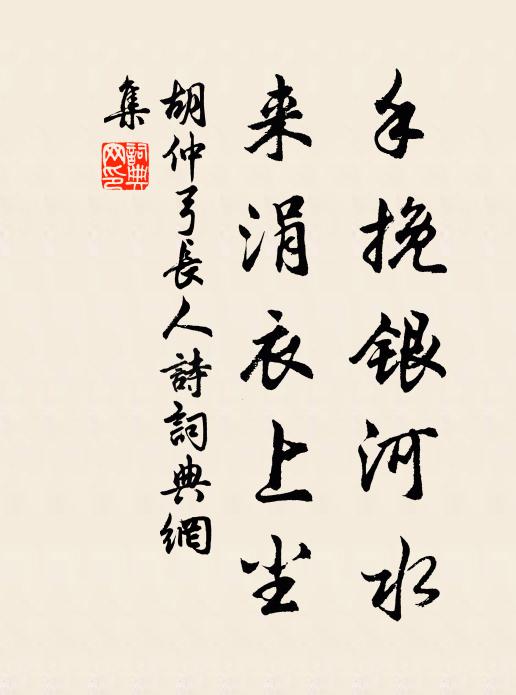 手挽銀河水
来涓衣上尘
胡仲弓長人詩詞典網
集
詞典
网印